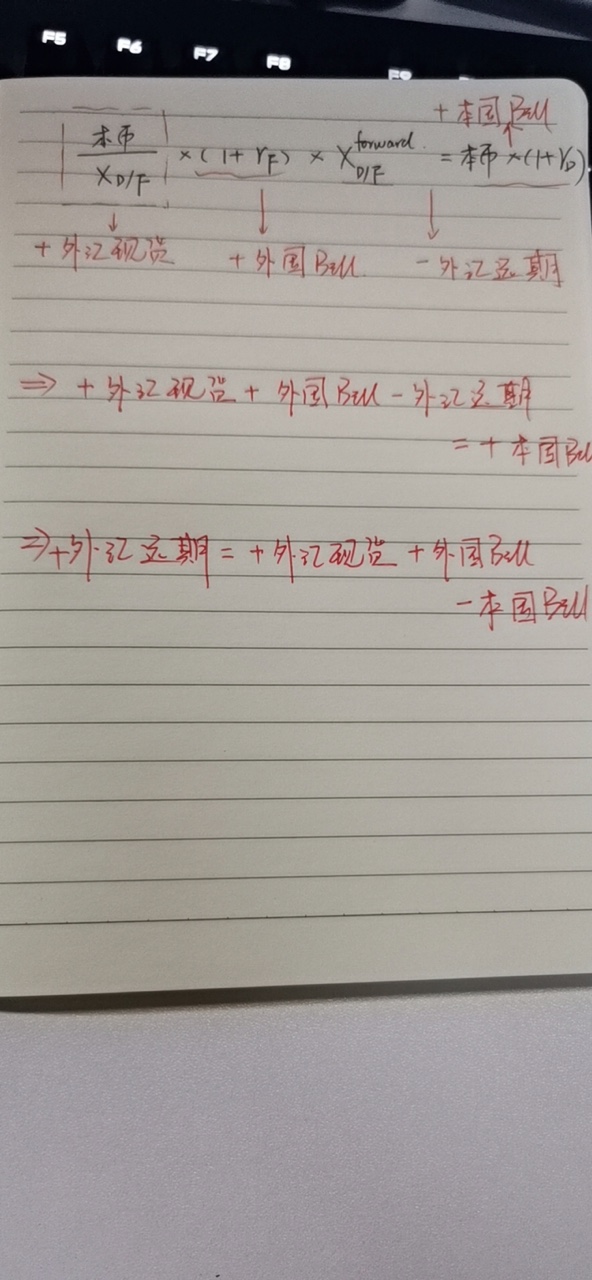 F5 F6 F7 F8 F9
+ 本国 Bill
本币/X_D/F × (1+r_F) × X_D/F^forward = 本币 × (1+r_D)
+ 外汇现货 + 外国 Bill - 外汇远期
⇒ + 外汇现货 + 外国 Bill - 外汇远期
= + 本国 Bill
⇒ + 外汇远期 = + 外汇现货 + 外国 Bill
- 本国 Bill